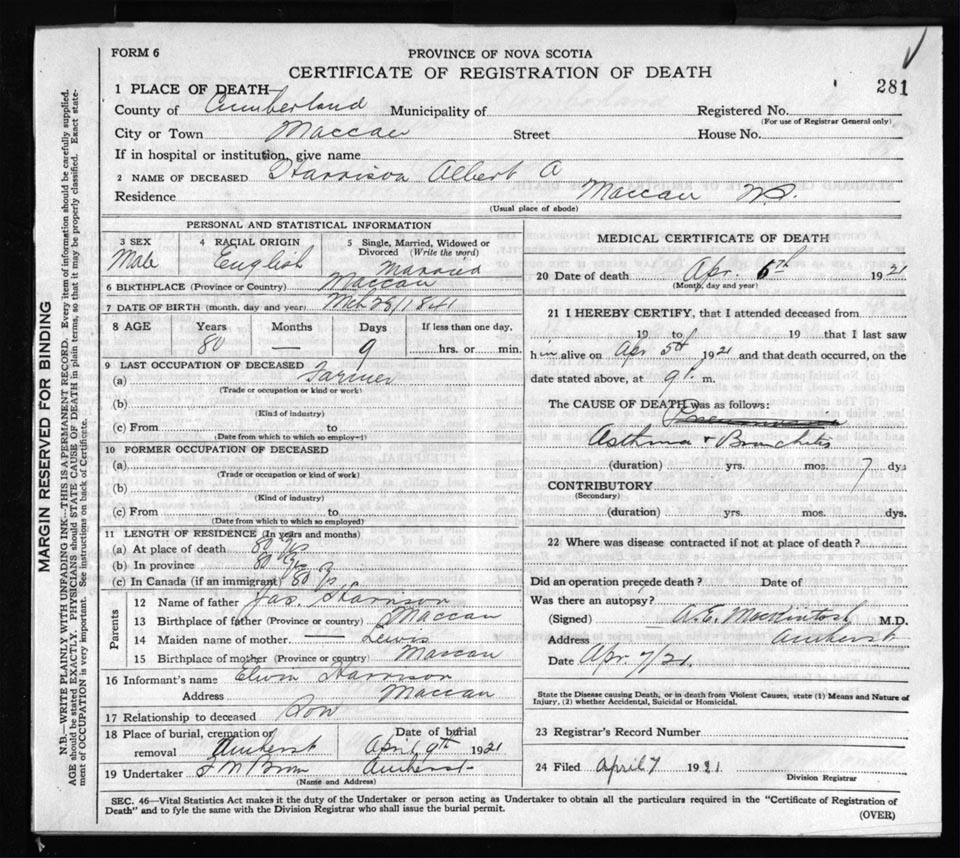 FORM 6
PROVINCE OF NOVA SCOTIA
CERTIFICATE OF REGISTRATION OF DEATH
281
1 PLACE OF DEATH
County of Cumberland Municipality of Registered No.
(For use of Registrar General only)
City or Town Maccan Street House No.
If in hospital or institution, give name
2 NAME OF DECEASED Harrison Albert A
Residence Maccan N.S.
(Usual place of abode)
PERSONAL AND STATISTICAL INFORMATION
3 SEX 4 RACIAL ORIGIN 5 Single, Married, Widowed or Divorced (Write the word)
Male English Married
6 BIRTHPLACE (Province or Country) Maccan
7 DATE OF BIRTH (month, day and year) Mch 28/1841
8 AGE Years Months Days If less than one day,
80 — 9 hrs. or min.
9 LAST OCCUPATION OF DECEASED
(a) Farmer
(Trade or occupation or kind or work)
(b)
(Kind of industry)
(c) From to
(Date from which to which so employ—)
10 FORMER OCCUPATION OF DECEASED
(a)
(Trade or occupation or kind of work)
(b)
(Kind of industry)
(c) From to
(Date from which to which so employed)
11 LENGTH OF RESIDENCE (In years and months)
(a) At place of death 80 yrs
(b) In province 80 yrs
(c) In Canada (if an immigrant) 80 yrs
Parents
12 Name of father Jas. Harrison
13 Birthplace of father (Province or country) Maccan
14 Maiden name of mother — Lewis
15 Birthplace of mother (Province or country) Maccan
16 Informant's name Harrison
Address Maccan
17 Relationship to deceased Son
18 Place of burial, cremation or removal Amherst Date of burial April 9th 1921
19 Undertaker F M Brown Amherst
(Name and Address)
MEDICAL CERTIFICATE OF DEATH
20 Date of death Apr. 5th 1921
(Month, day and year)
21 I HEREBY CERTIFY, that I attended deceased from
19 to 19 that I last saw
him alive on Apr 5th 1921 and that death occurred, on the
date stated above, at 9 P. m.
The CAUSE OF DEATH was as follows:
Pneumonia
Asthma + Bronchitis
(duration) yrs. mos. 7 dys
CONTRIBUTORY
(Secondary)
(duration) yrs. mos. dys.
22 Where was disease contracted if not at place of death?
Did an operation precede death? Date of
Was there an autopsy?
(Signed) A.E. Mackintosh M.D.
Address Amherst
Date Apr 7/21.
State the Disease causing Death, or in death from Violent Causes, state (1) Means and Nature of
Injury, (2) whether Accidental, Suicidal or Homicidal.
23 Registrar's Record Number
24 Filed April 7 1921
Division Registrar
SEC. 46—Vital Statistics Act makes it the duty of the Undertaker or person acting as Undertaker to obtain all the particulars required in the "Certificate of Registration of
Death" and to fyle the same with the Division Registrar who shall issue the burial permit.
(OVER)
MARGIN RESERVED FOR BINDING
N.B.—WRITE PLAINLY WITH UNFADING INK—THIS IS A PERMANENT RECORD. Every item of information should be carefully supplied.
AGE should be stated EXACTLY. PHYSICIANS should STATE CAUSE OF DEATH in plain terms, so that it may be properly classified. Exact state-
ment of OCCUPATION is very important. See instructions on back of Certificate.